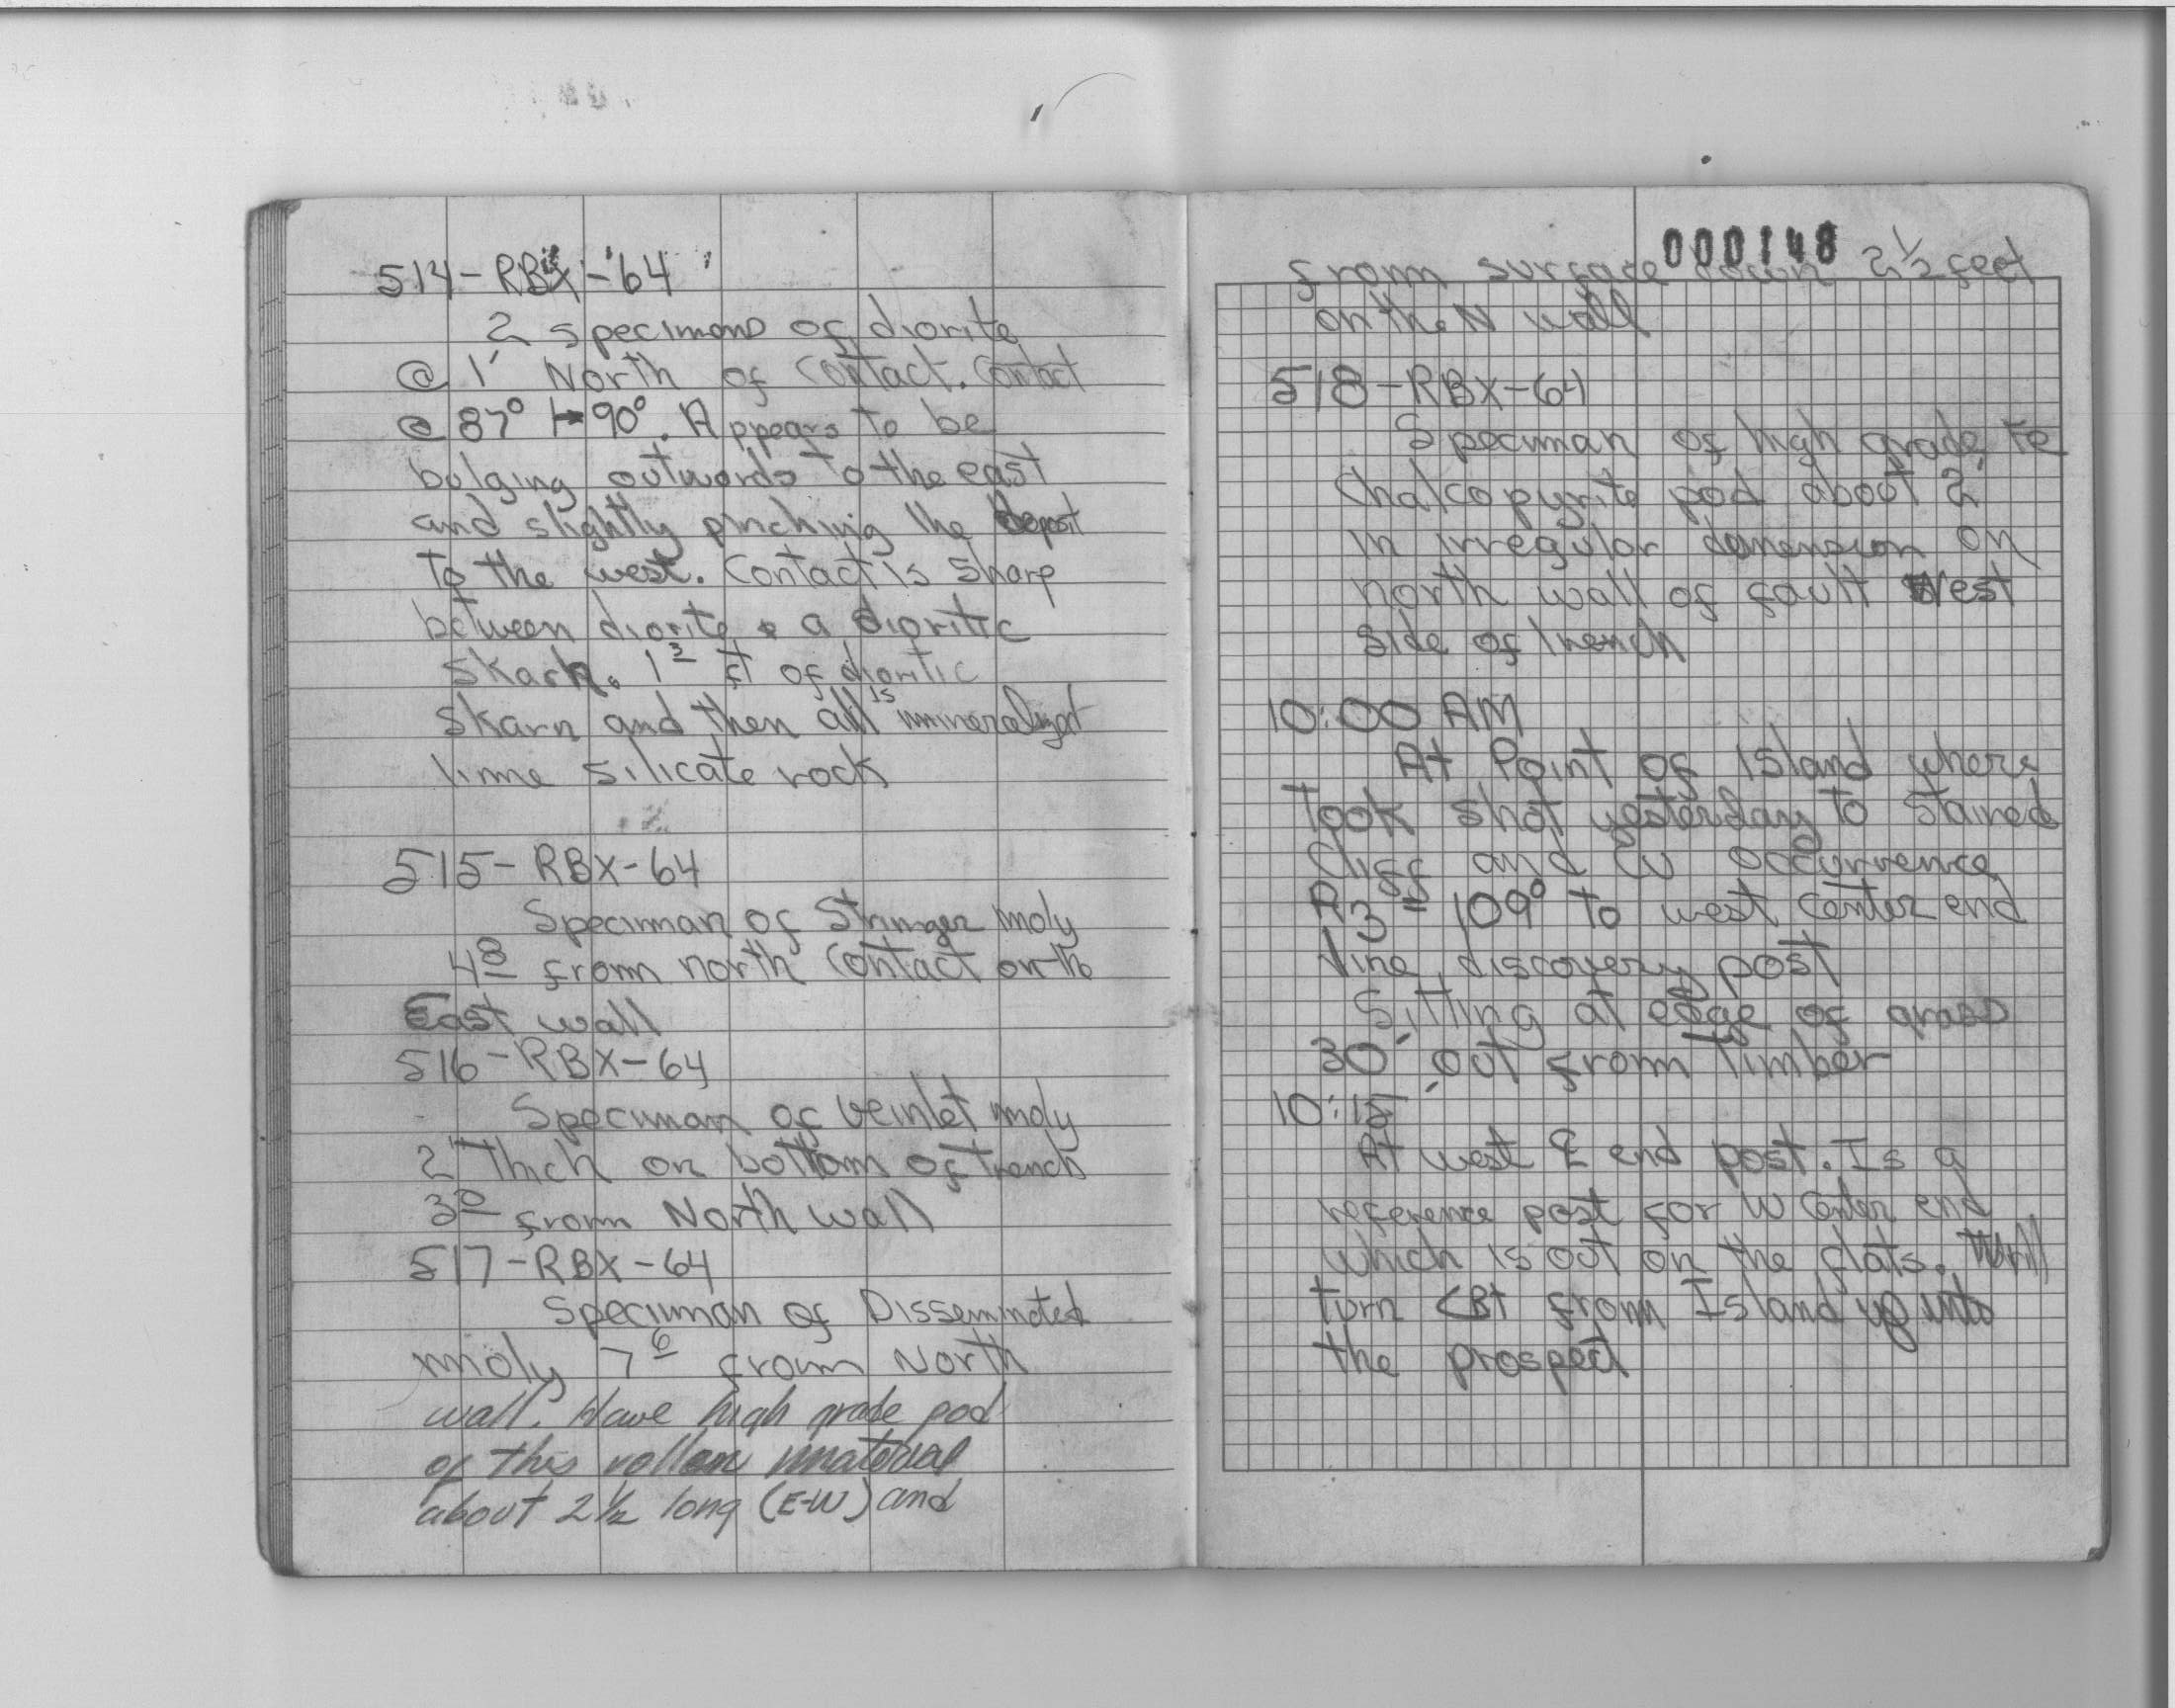 514-RBX-'64
2 specimens of diorite
@ 1' North of contact. Contact
@ 87° 90°. Appears to be
bulging outwards to the east
and slightly pinching the deposit
to the west. Contact is sharp
between diorite & a dioritic
skarn. 1 3 ft of dioritic
skarn and then all is mineralized
lime silicate rock
515-RBX-64
Speciman of Stringer moly
4 8 from north contact on the
East wall
516-RBX-64
Speciman of veinlet moly
2" Thick on bottom of trench
3 0 from North wall
517-RBX-64
Speciman of Disseminated
moly 7 6 from North
wall. Have high grade pod
of this material
about 2 1/2 long (E-W) and
000148
from surface down 2 1/2 feet
on the N wall
518-RBX-64
Speciman of high grade
Chalcopyrite pod about 2'
in irregular dimension on
north wall of fault West
side of trench
10:00 AM
At Point of Island where
Took shot yesterday to stained
Cliff and Cu occurrence
= 109° to west center end
line discovery post
Sitting at edge of grass
30' out from Timber
10:15
At west ℄ end post. Is a
reference post for W Center end
which is out on the flats. Will
turn CBT from Island up into
the prospect